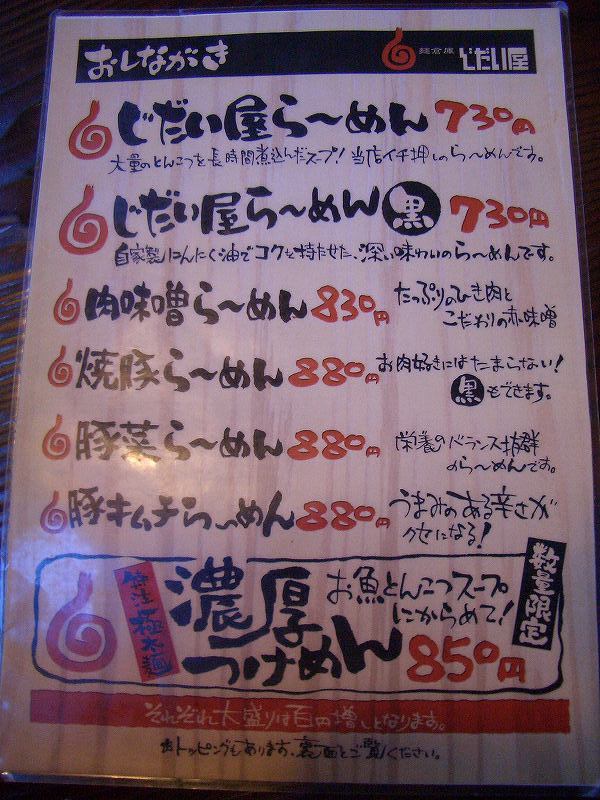 おしながき
麺倉庫 じだい屋
じだい屋ら〜めん 730円
大量のとんこつを長時間煮込んだスープ!当店イチ押しのら〜めんです。
じだい屋ら〜めん 黒 730円
自家製にんにく油でコクを持たせた、深い味わいのら〜めんです。
肉味噌ら〜めん 830円 たっぷりのひき肉と
こだわりの赤味噌
焼豚ら〜めん 880円 お肉好きにはたまらない!
黒もできます。
豚菜ら〜めん 880円 栄養のバランス抜群
のら〜めんです。
豚キムチら〜めん 880円 うまみのある辛さが
クセになる!
数量限定
特注極太麺
濃厚
つけめん
お魚とんこつスープ
にからめて!
850円
それぞれ大盛りは百円増しとなります。
トッピングもあります、裏面をご覧ください。